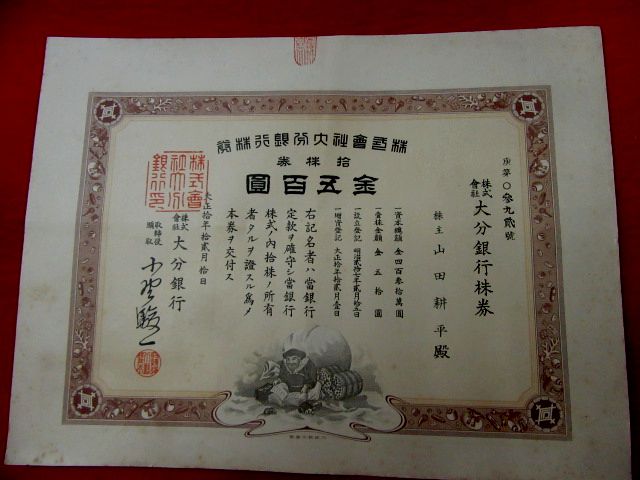 株式會社大分銀行株券
拾株券
金五百圓
庚第〇參九貳號
株式會社 大分銀行株券
株主 山田耕平殿
一資本總額 金四百參拾萬圓
一壹株金額 金五拾圓
一設立登記 明治貳拾七年貳月拾五日
一增資登記 大正拾年拾貳月壹日
右記名者ハ當銀行
定款ヲ確守シ當銀行
株式ノ內拾株ノ所有
者タルヲ證スル爲メ
本券ヲ交付ス
大正拾年拾貳月拾日
株式會社 大分銀行
取締役頭取
株式會社大分銀行之印